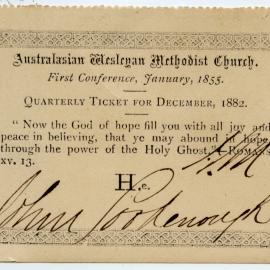 Australasian Wesleyan Methodist Church.
First Conference, January, 1855.
QUARTERLY TICKET FOR DECEMBER, 1882.
"Now the God of hope fill you with all joy and
peace in believing, that ye may abound in hope
through the power of the Holy Ghost."—ROMANS
xv. 13.
He.
John